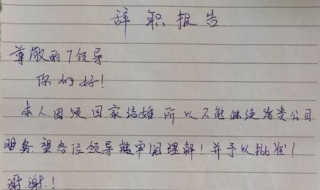 辞职报告
尊敬的丁领导
你们好!
本人因须回家结婚所以不能继续 公司
服务望各位领导能 理解!并予以批准!
谢谢!